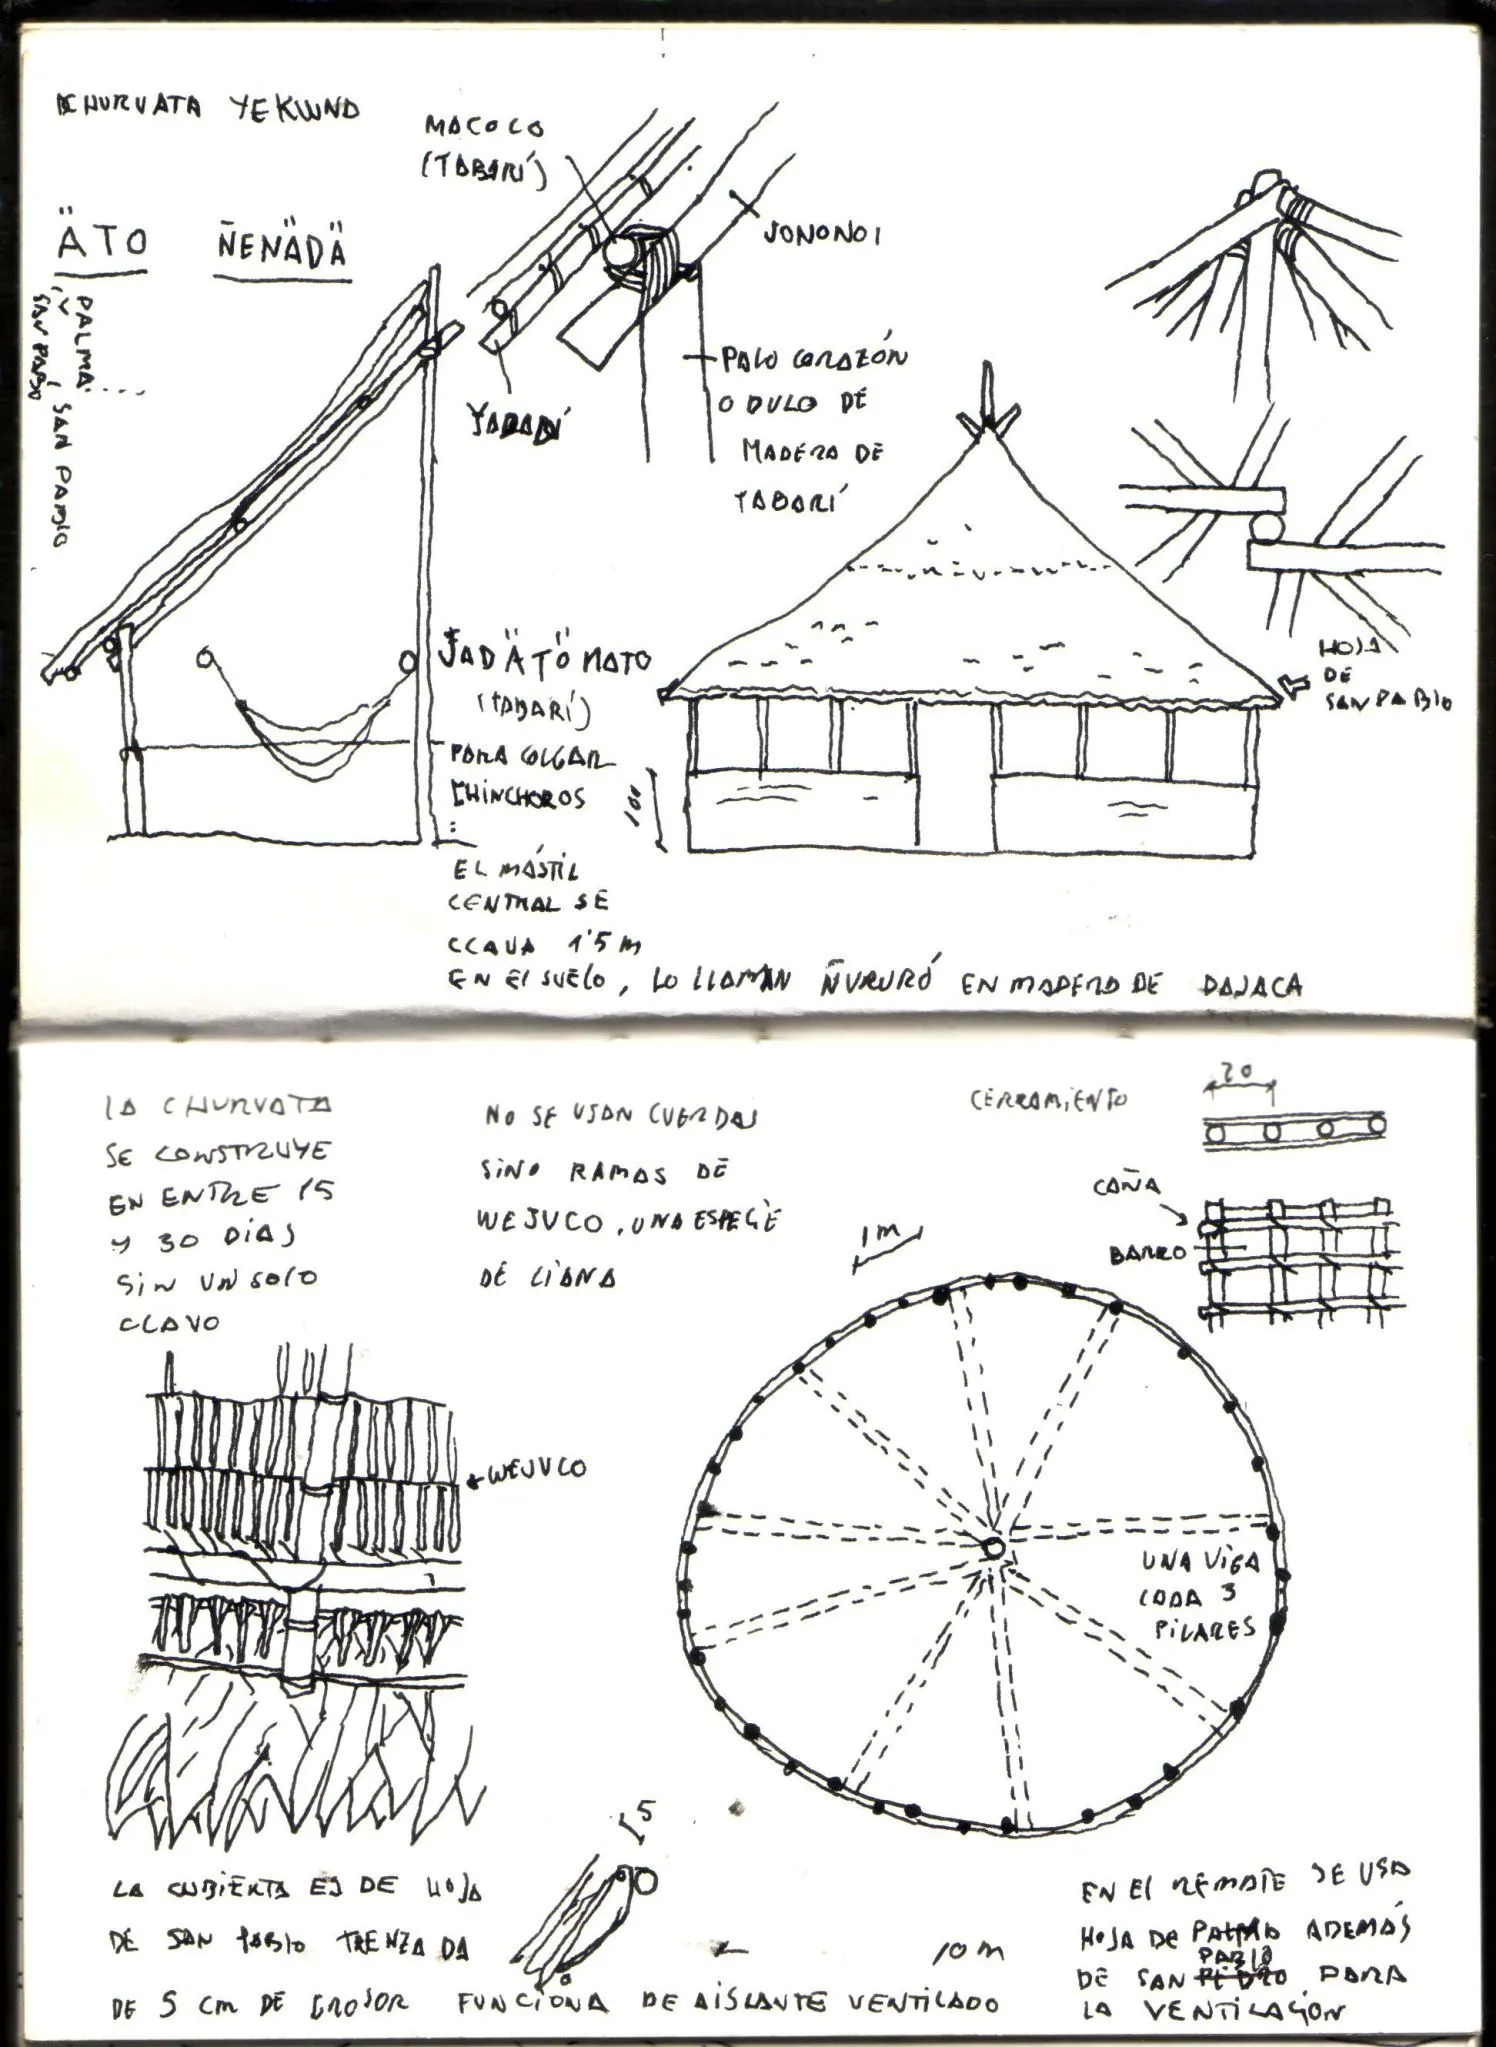 CHURUATA YEKUANA
MACOCO
(TABARÍ)
ÄTO ÑENÄDÄ
JONONOI
PALMA....
Y
SAN PABLO
SAN PABLO
PALO CORAZÓN
O DULO DE
MADERA DE
TABARÍ
JADÄTÖNATO
(TABARÍ)
PARA COLGAR
CHINCHOROS
:
EL MÁSTIL
CENTRAL SE
CLAVA 1'5 m
EN EL SUELO, LO LLAMAN ÑURURÓ EN MADERA DE DAJACA
100
HOJA
DE
SAN PABLO
LA CHURUATA
SE CONSTRUYE
EN ENTRE 15
Y 30 DÍAS
SIN UN SOLO
CLAVO
NO SE USAN CUERDAS
SINO RAMAS DE
WEJUCO, UNA ESPECIE
DE LIANA
CERRAMIENTO
20
CAÑA
BARRO
1 m
WEJUCO
UNA VIGA
CADA 3
PILARES
5
LA CUBIERTA ES DE HOJA
DE SAN PABLO TRENZADA
DE 5 cm DE GROSOR FUNCIONA DE AISLANTE VENTILADO
10 m
EN EL REMATE SE USA
HOJA DE PALMA ADEMÁS
DE SAN PEDRO PABLO PARA
LA VENTILACIÓN